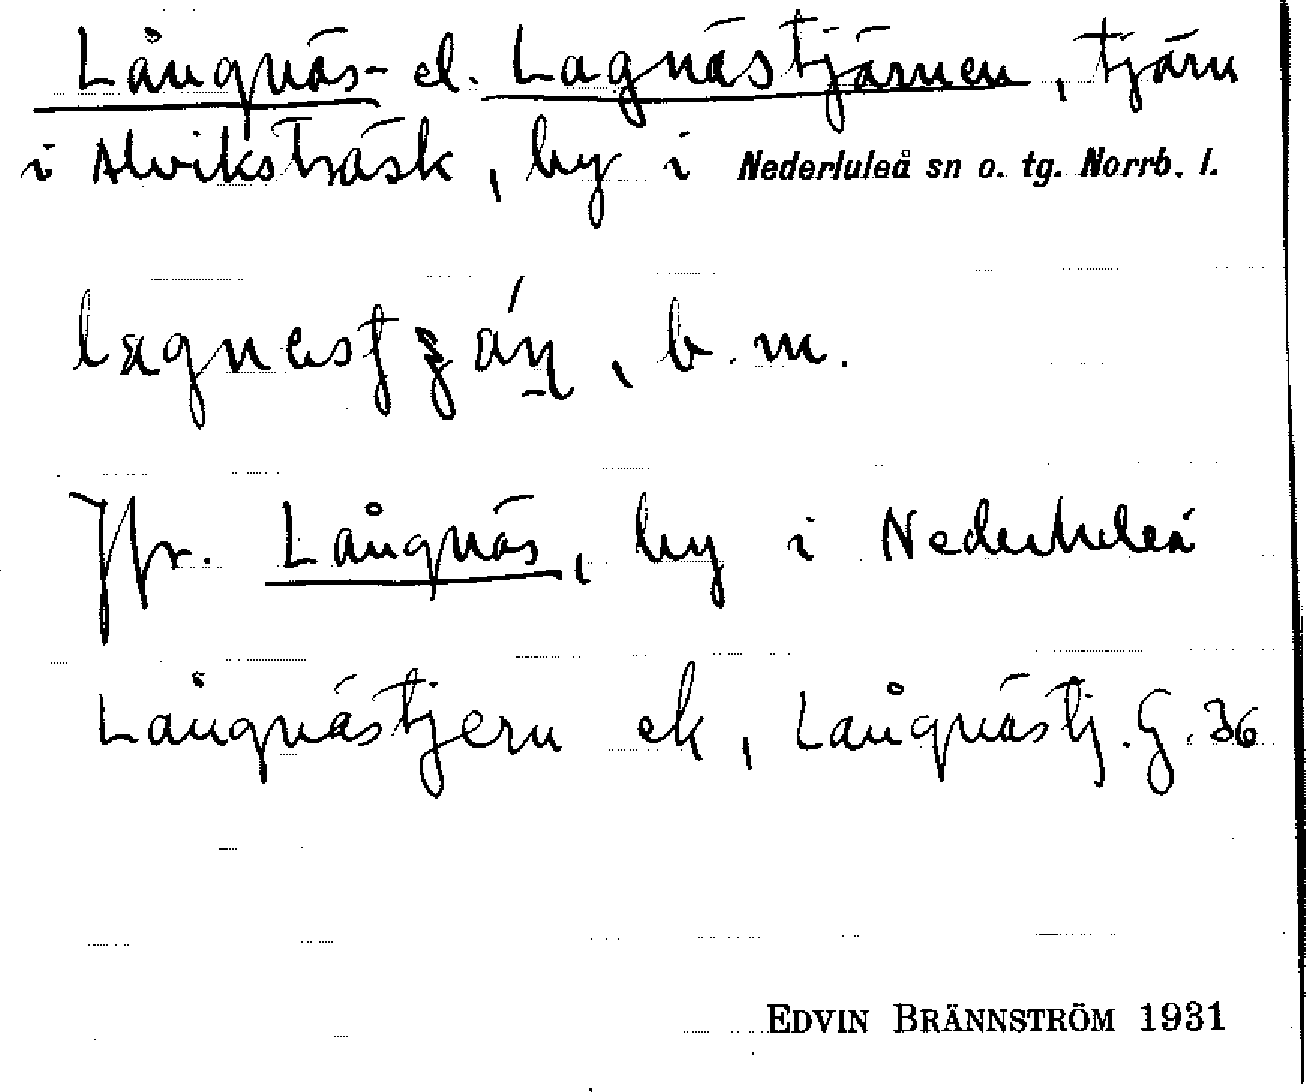 Långnäs- el. Lagnästjärnen, tjärn
i Alvikstråsk, by i Nederluleå sn o. tg. Norrb. l.
b. m.
Jfr. Långnäs, by i Nederluleå
Långnästjern ek, Långnästj. G. 36
EDVIN BRÄNNSTRÖM 1931